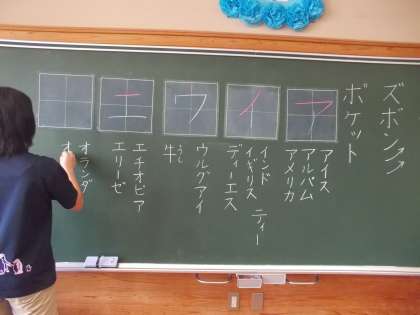 ズボン
ポケット
ア
アイス
アルバム
アメリカ
イ
インド
イギリス
ティー
ディーエス
ウ
ウルグアイ
牛
うし
エ
エチオピア
エリーゼ
オランダ
オ